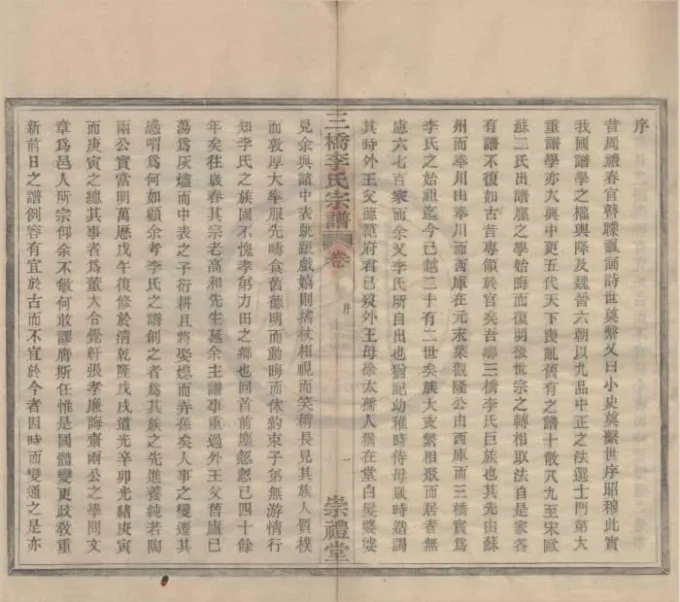 序
昔周禮春官瞽矇諷誦詩世奠繫又曰小史奠繫世序昭穆此實
我國譜學之權輿降及魏晉六朝以九品中正之法選士門第大
重譜學亦大興中更五代天下喪亂舊有之譜十散八九至宋歐
蘇二氏出譜牒之學始晦而復明後世宗之轉相取法自是家各
有譜不復如古昔專領於官矣吾鄉三橋李氏巨族也其先由蘇
州而奉川由奉川而西庫在元末業觀隆公由西庫而三橋實爲
李氏之始祖迄今已越二十有二世矣族大支繁相聚而居者無
慮六七百家而余父李氏所自出也猶記幼稚時侍母歲時造謁
其時外王父德範府君已歿外王母徐太孺人猶在堂白髮婆娑
三橋李氏宗譜
卷
序
一
崇禮堂
見余與諸中表跳踉戲嬉則搘杖相視而笑稍長見其族人質樸
而敦厚大率服先疇食舊德明而動晦而休約束子弟無游惰行
知李氏之族固不愧孝弟力田之鄉也回首前塵忽忽已四十餘
年矣往歲春其宗老高和先生延余主譜事重過外王父舊廬已
蕩爲灰燼而中表之子衍耕且將娶媳而弄孫矣人事之變遷其
感喟爲何如顧余考李氏之譜創之者爲其族之先進養純若陶
兩公實當明萬曆戊午復修於清乾隆戊戌道光辛卯光緒庚寅
而庚寅之總其事者爲董大合覺軒張孝廉晦齋兩公之學問文
章爲邑人所宗仰余不敏何敢謬膺斯任惟是國體變更政敎重
新前日之譜例容有宜於古而不宜於今者因時而變通之是亦